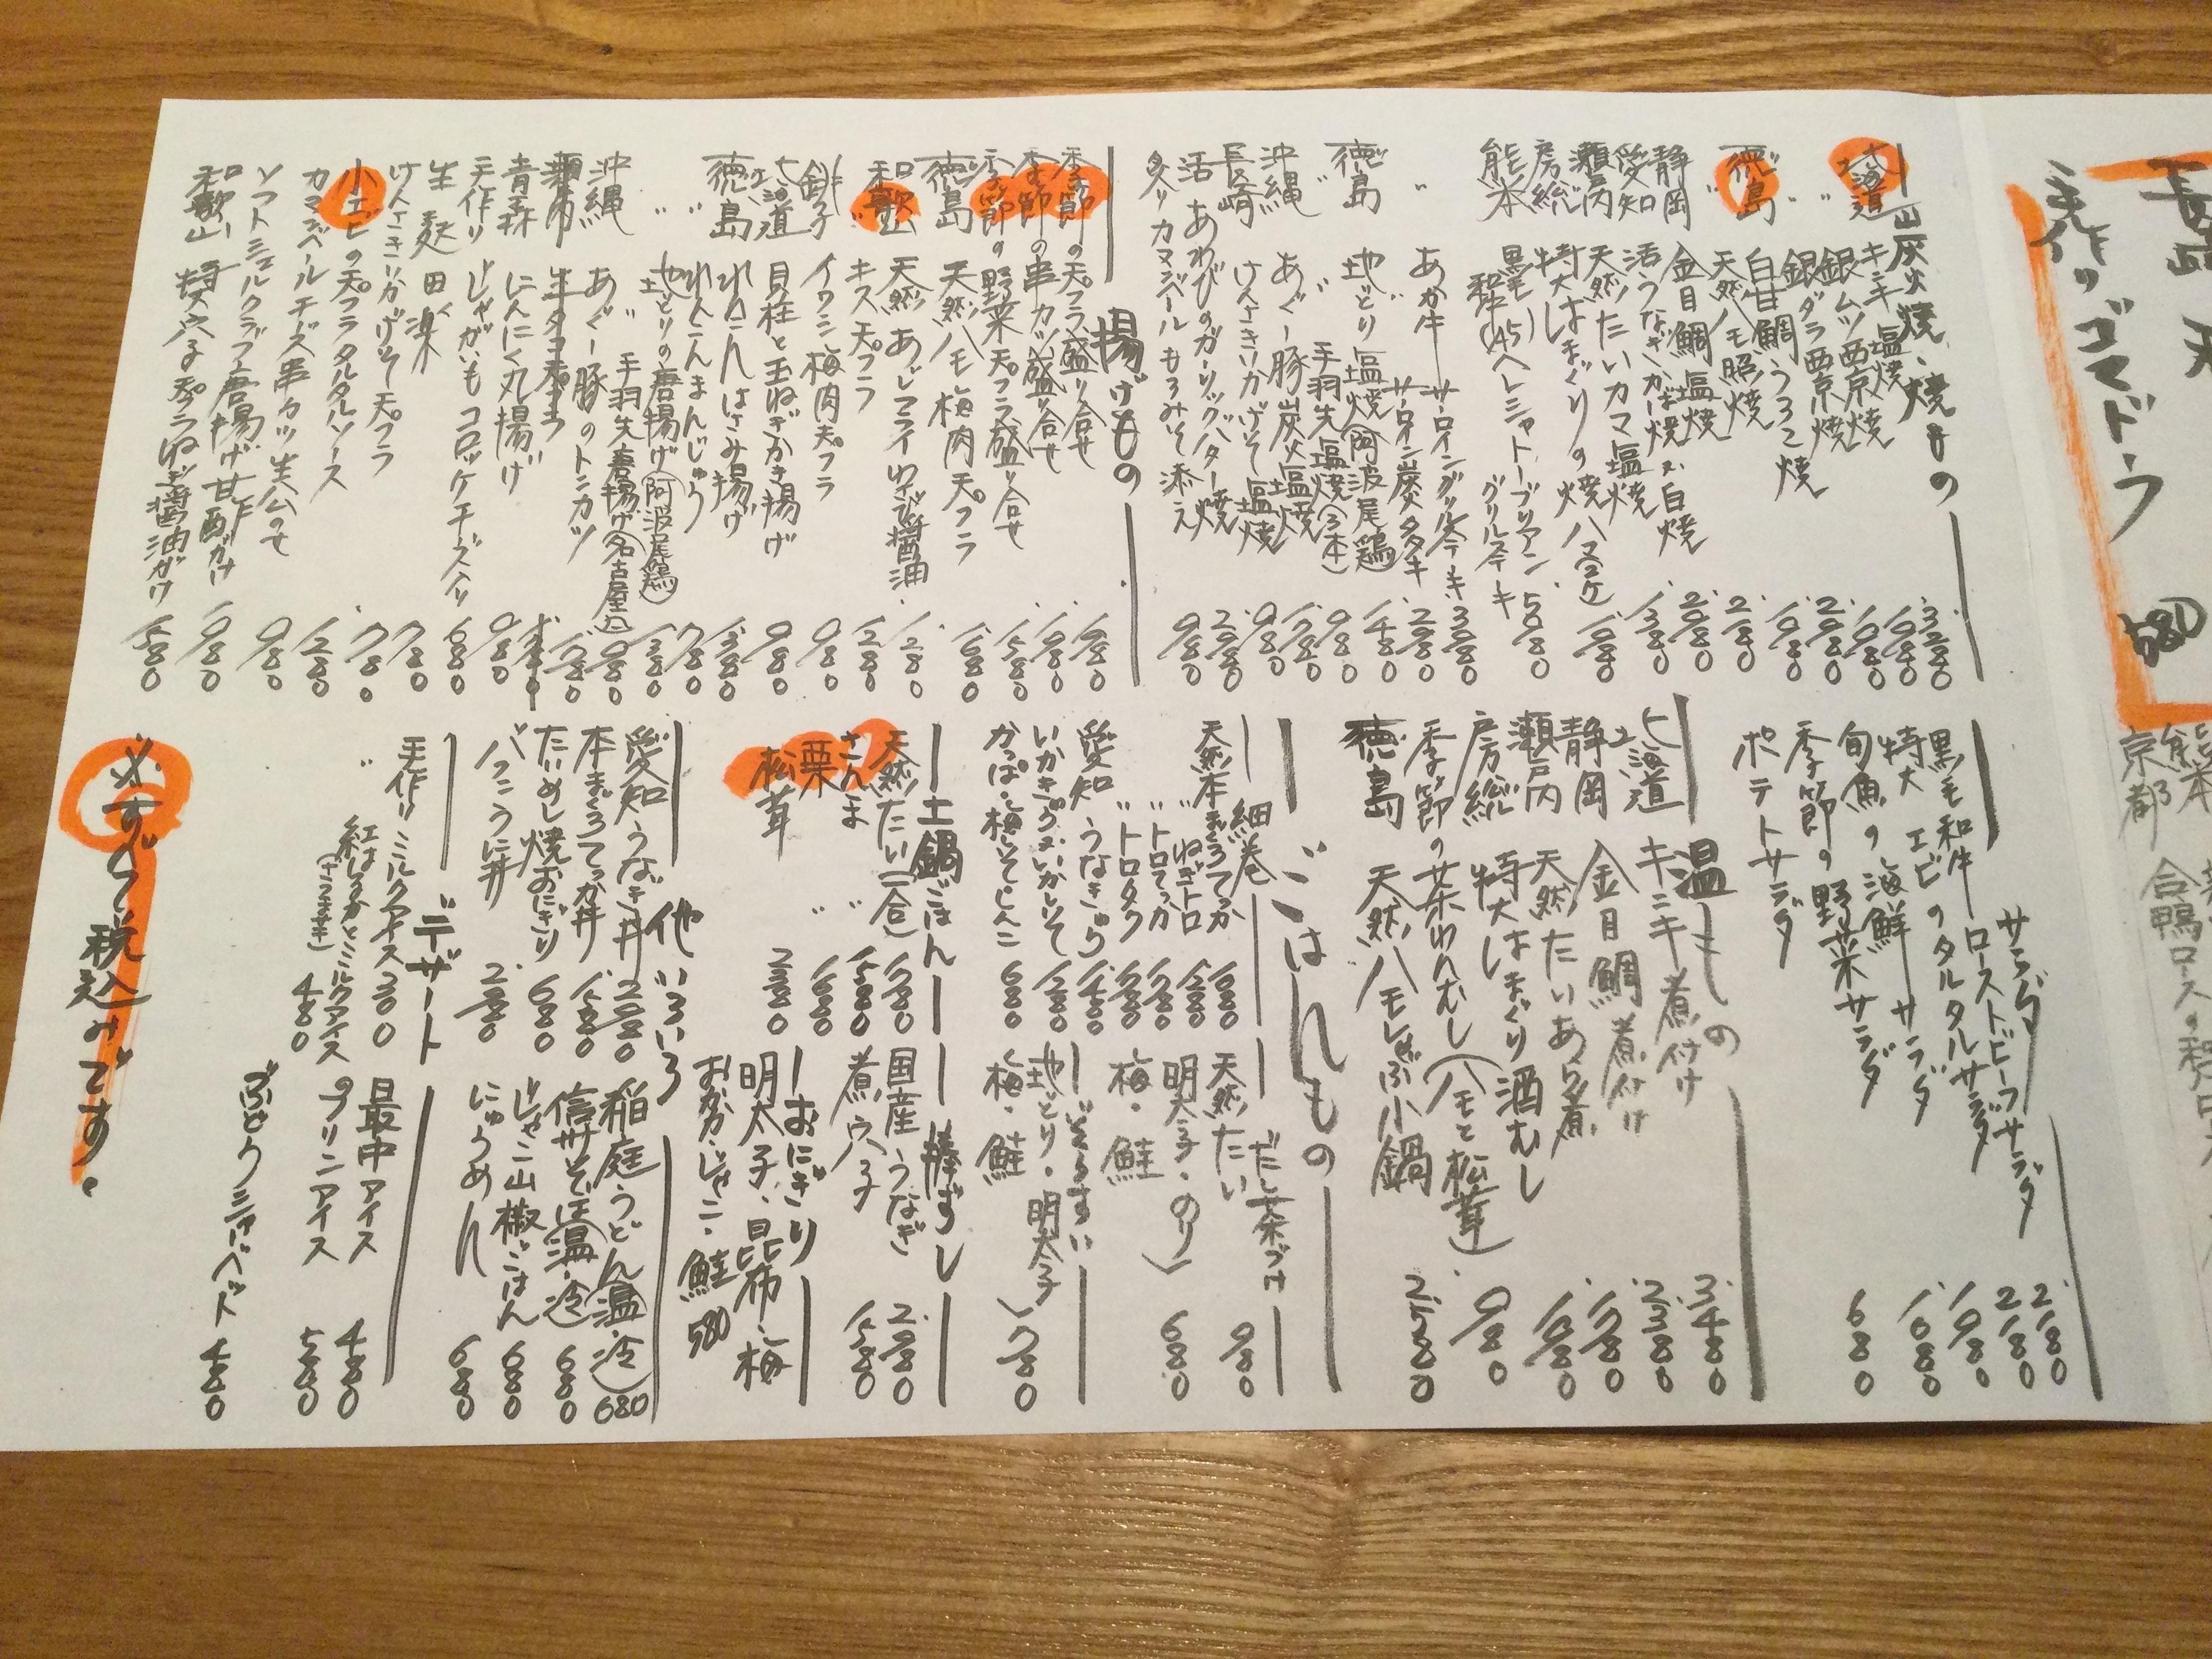 手作りゴマドーフ 580
炭火焼・焼もの
北海道 キンキ塩焼 3280
〃 銀ムツ西京焼 1980
〃 銀ダラ西京焼 1980
白甘鯛うろこ焼 2980
徳島 天然ハモ照焼 1980
静岡 金目鯛塩焼 2180
愛知 活うなぎかば焼又は白焼 2980
瀬戸内 天然たいカマ塩焼 1380
房総 特大はまぐりの焼ハマ(2ケ) 1980
熊本 黒毛和牛(A5)ヘレシャトーブリアングリルステーキ 5980
〃 あか牛サーロイングリルステーキ 3980
〃 〃 サーロイン炭タタキ 2980
徳島 地どり塩焼(阿波尾鶏) 1480
〃 〃 手羽先塩焼(3本) 980
沖縄 あぐー豚炭火塩焼
長崎 けんさきいかげそ塩焼 980
活あわびのガーリックバター焼 2980
炙りカマンベールもろみそ添え 980
揚げもの
季節の天プラ盛り合せ 1980
季節の串カツ盛り合せ 1980
季節の野菜天プラ盛り合せ 1580
徳島 天然ハモ梅肉天プラ 1680
和歌山 天然あじフライわさび醤油 1280
〃 キス天プラ 1280
銚子 イワシ梅肉天プラ 980
北海道 貝柱と玉ねぎかき揚げ 980
徳島 れんこんはさみ揚げ 1380
〃 れんこんまんじゅう 780
〃 地どりの唐揚げ(阿波尾鶏) 1380
〃 手羽先唐揚げ(名古屋風) 980
沖縄 あぐー豚のトンカツ
瀬戸内 生タコ天プラ
青森 にんにく丸揚げ 980
手作り じゃがいもコロッケチーズ入り 680
生麩田楽 780
けんさきいかげそ天プラ
小エビの天プラタルタルソース 1280
カマンベールチーズ串カツ生ハムのせ 980
ソフトシェルクラブ唐揚げ甘酢がけ 1980
和歌山 特大穴子天プラねぎ醤油がけ 1580
サラダ
黒毛和牛ローストビーフサラダ 2180
特大エビのタルタルサラダ 2180
旬魚の海鮮サラダ 1980
季節の野菜サラダ 1680
ポテトサラダ 680
温もの
北海道 キンキ煮付け 3480
静岡 金目鯛煮付け 2380
瀬戸内 天然たいあら煮 1780
房総 特大はまぐり酒むし 1980
季節の茶わんむし(ハモと松茸) 980
徳島 天然ハモしゃぶ小鍋 2580
ごはんもの
細巻
天然本まぐろてっか 1680
〃 ねぎトロ 1280
〃 トロてっか 1780
〃 トロタク 1780
愛知 うなきゅう 1480
いかきゅう又はいかしそ 1280
かっぱ・梅しそしんこ 680
だし茶づけ
天然たい 980
明太子・のり
梅・鮭 680
ぞうすい
地どり・明太子
梅・鮭 780
土鍋ごはん
天然たい(一合) 1780
さんま 1580
栗 〃 1680
松茸 〃 2380
棒ずし
国産うなぎ 2980
煮穴子 1580
おにぎり
明太子、昆布・梅
おかか・じゃこ・鮭 580
他いろいろ
愛知うなぎ丼 2980
本まぐろてっか丼 1580
たいめし焼おにぎり 680
バフンうに丼 2980
稲庭うどん(温・冷) 680
信州そば(温・冷) 680
じゃこ山椒ごはん 680
にゅうめん 680
デザート
手作りミルクアイス 300
〃 紅はるかとミルクアイス(さつまいも) 480
最中アイス 480
プリンアイス 580
ぶどうシャーベット 480
※すべて税込みです。